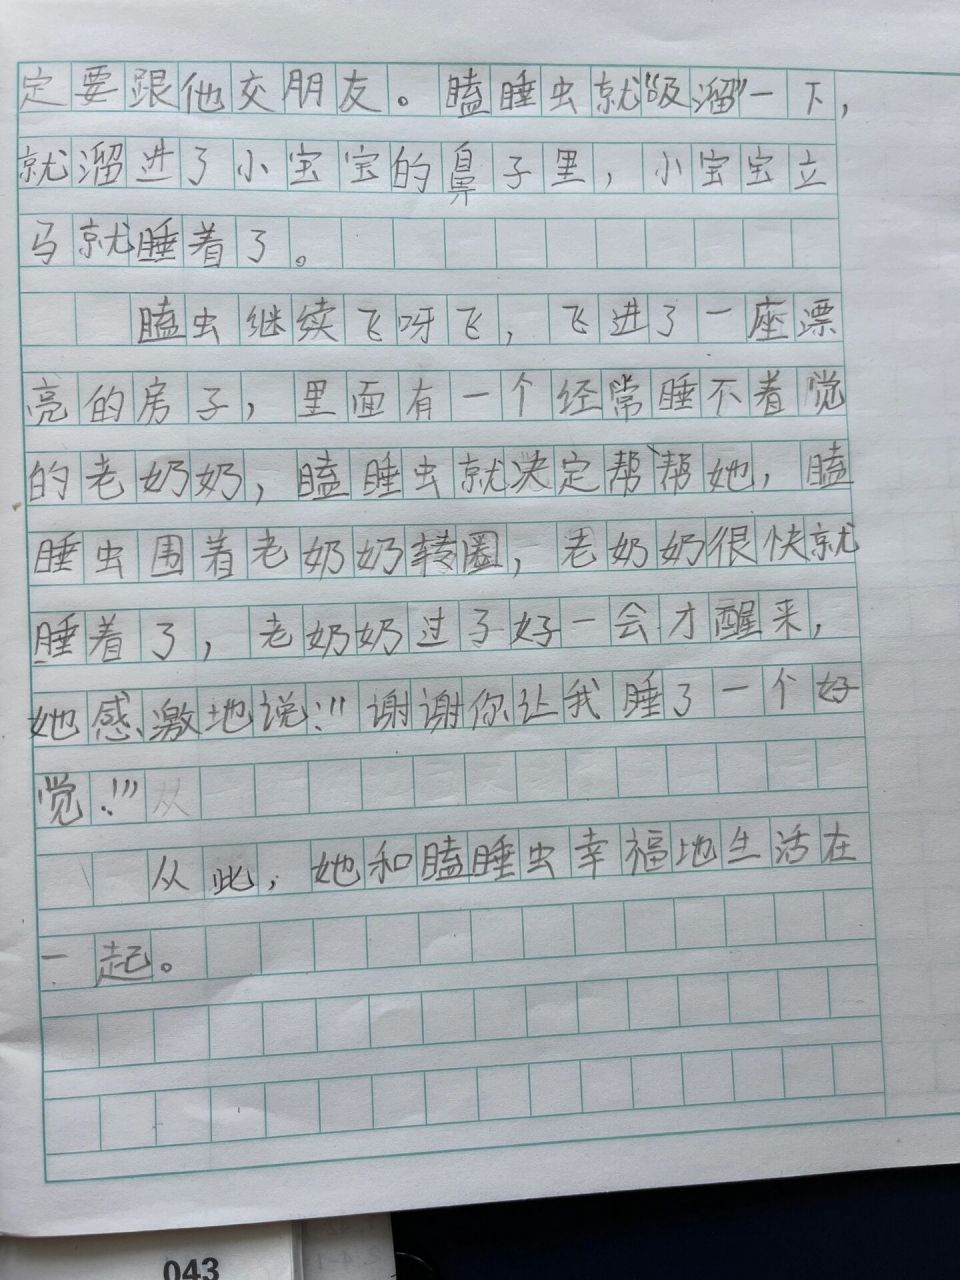 定要跟他交朋友。瞌睡虫就“吸溜”一下，
就溜进了小宝宝的鼻子里，小宝宝立
马就睡着了。
瞌虫继续飞呀飞，飞进了一座漂
亮的房子，里面有一个经常睡不着觉
的老奶奶，瞌睡虫就决定帮帮她，瞌
睡虫围着老奶奶转圈，老奶奶很快就
睡着了，老奶奶过了好一会才醒来，
她感激地说：“谢谢你让我睡了一个好
觉！”从
从此，她和瞌睡虫幸福地生活在
一起。
043